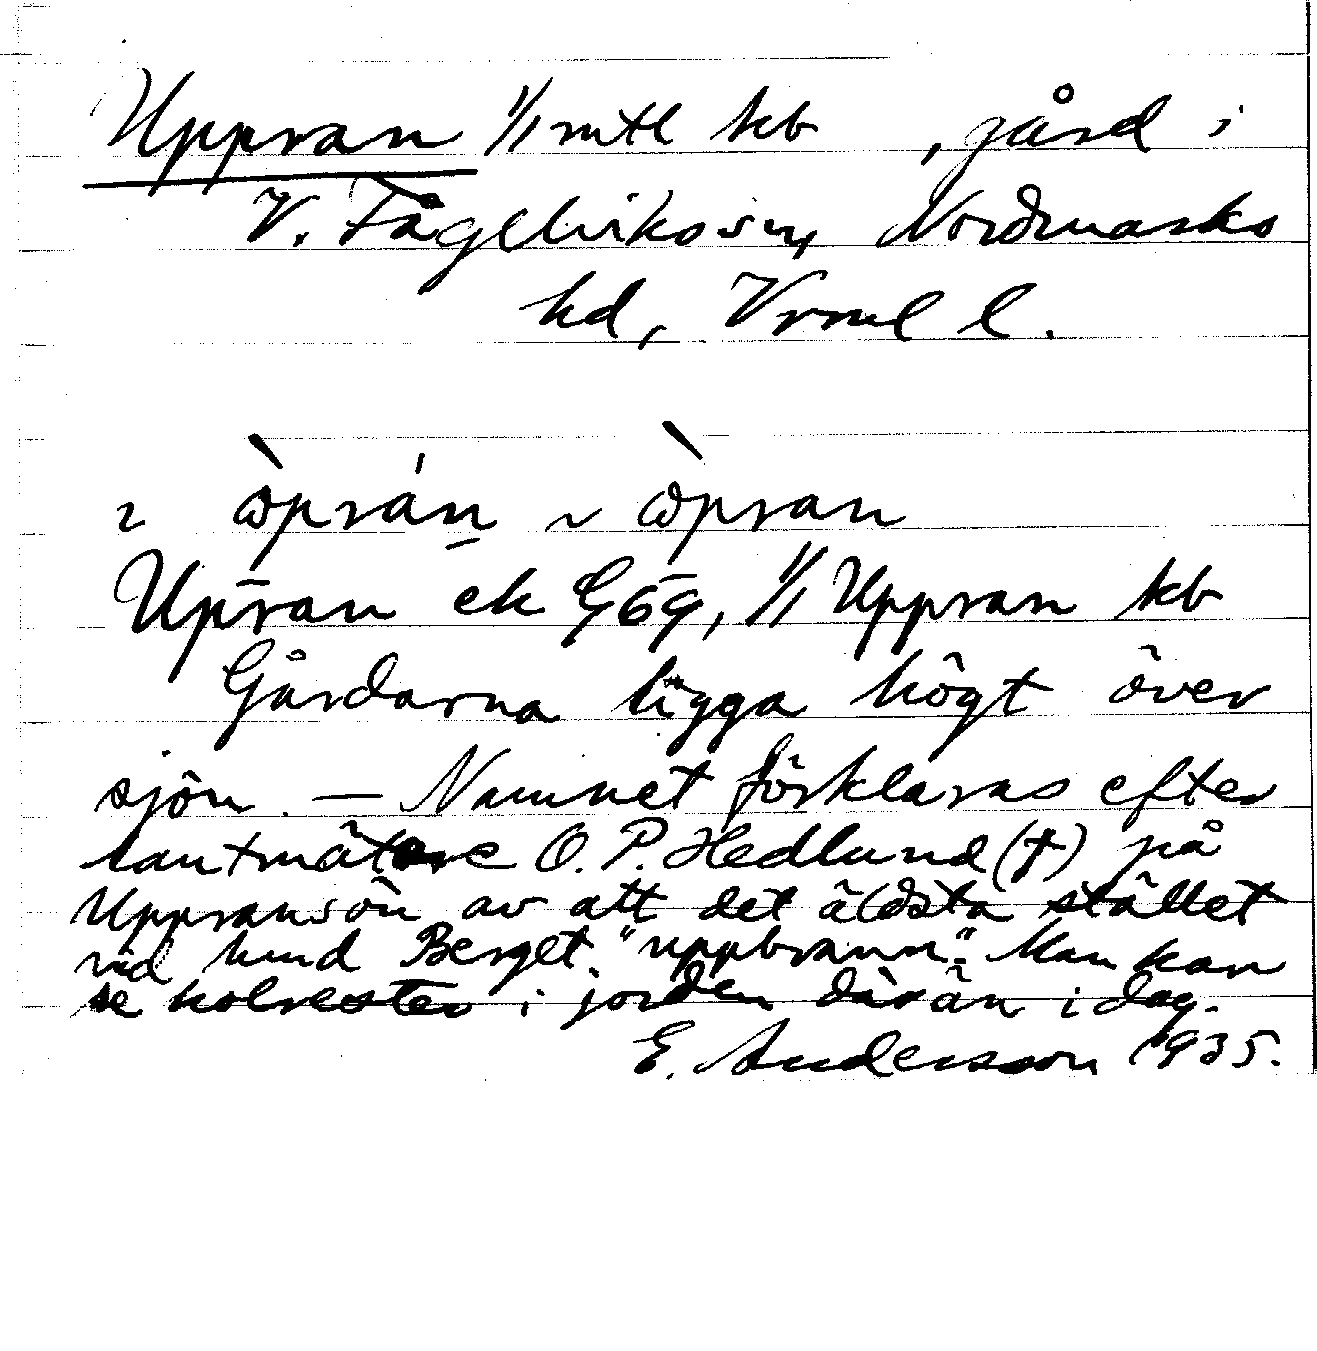 Uppran 1/1 mtl kb , gård i
V. Fågelviks sn, Nordmarks
hd, Vrml l.
~ òprán ~ òpran
Upran ek G69, 1/1 Uppran kb
Gårdarna ligga högt över
sjön. — Namnet förklaras efter
lantmätare O. P. Hedlund (†) på
Uppransön av att det äldsta stället
vid hund Berget. "uppbrann". Man kan
se kolrester i jorden där än i dag.
E. Andersson 1935.